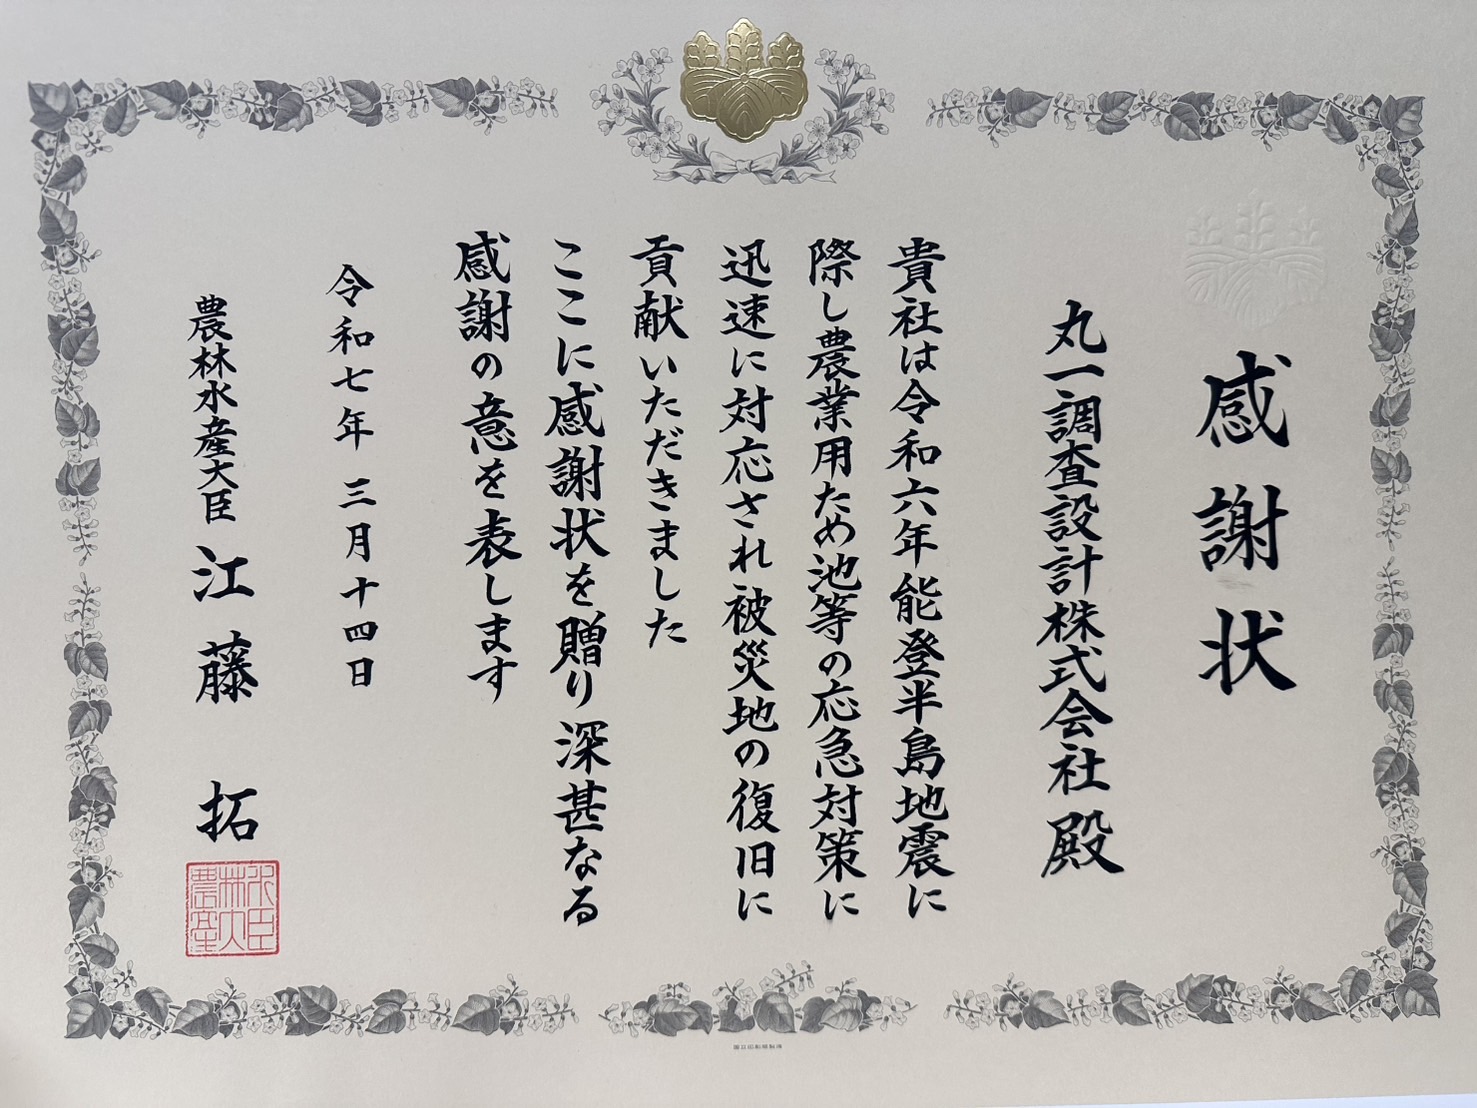 感謝状
丸一調査設計株式会社殿
貴社は令和六年能登半島地震に
際し農業用ため池等の応急対策に
迅速に対応され被災地の復旧に
貢献いただきました
ここに感謝状を贈り深甚なる
感謝の意を表します
令和七年三月十四日
農林水産大臣 江藤 拓